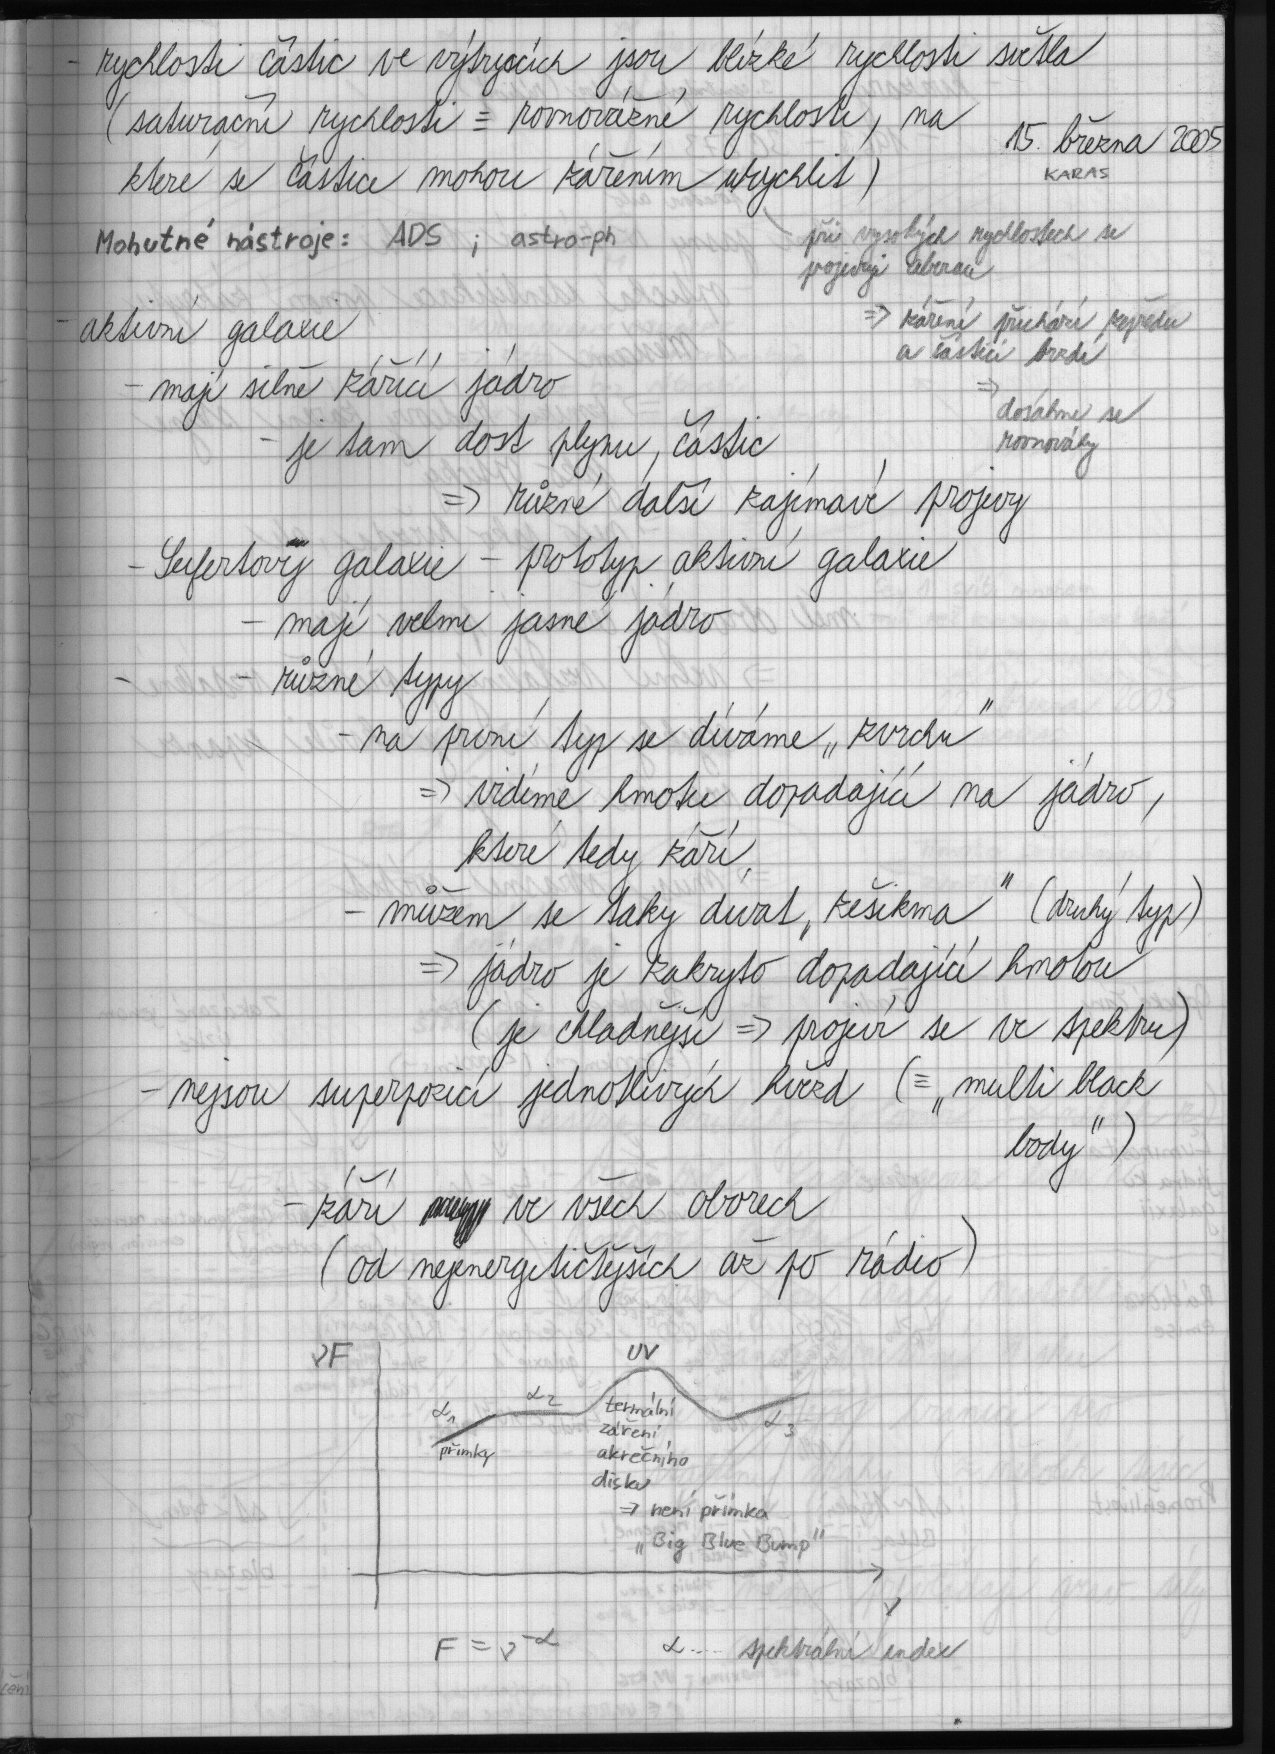 - rychlosti částic ve výtryscích jsou blízké rychlosti světla
(saturační rychlosti ≡ rovnovážné rychlosti, na
15. března 2005
KARAS
které se částice mohou zářením urychlit)
při vysokých rychlostech se
projevují aberace
⇒ záření přichází zepředu
a částici brzdí
⇒
dosáhne se
rovnováhy
Mohutné nástroje: ADS ; astro-ph
- aktivní galaxie
- mají silně zářící jádro
- je tam dost plynu, částic
⇒ různé další zajímavé projevy
- Seifertovy galaxie - prototyp aktivní galaxie
- mají velmi jasné jádro
- různé typy
- na první typ se díváme „zvrchu"
⇒ vidíme hmotu dopadající na jádro,
které tedy září,
- můžem se taky dívat „zešikma" (druhý typ)
⇒ jádro je zakryto dopadající hmotou
(je chladnější ⇒ projeví se ve spektru)
- nejsou superpozicí jednotlivých hvězd (≡ „multi black
body")
- září ve všech oborech
(od nejenergetičtějších až po rádio)
νF
UV
α₁
α₂
α₃
přímky
termální
záření
akrečního
disku
⇒ není přímka
„Big Blue Bump"
ν
F = ν^-α
α .... spektrální index